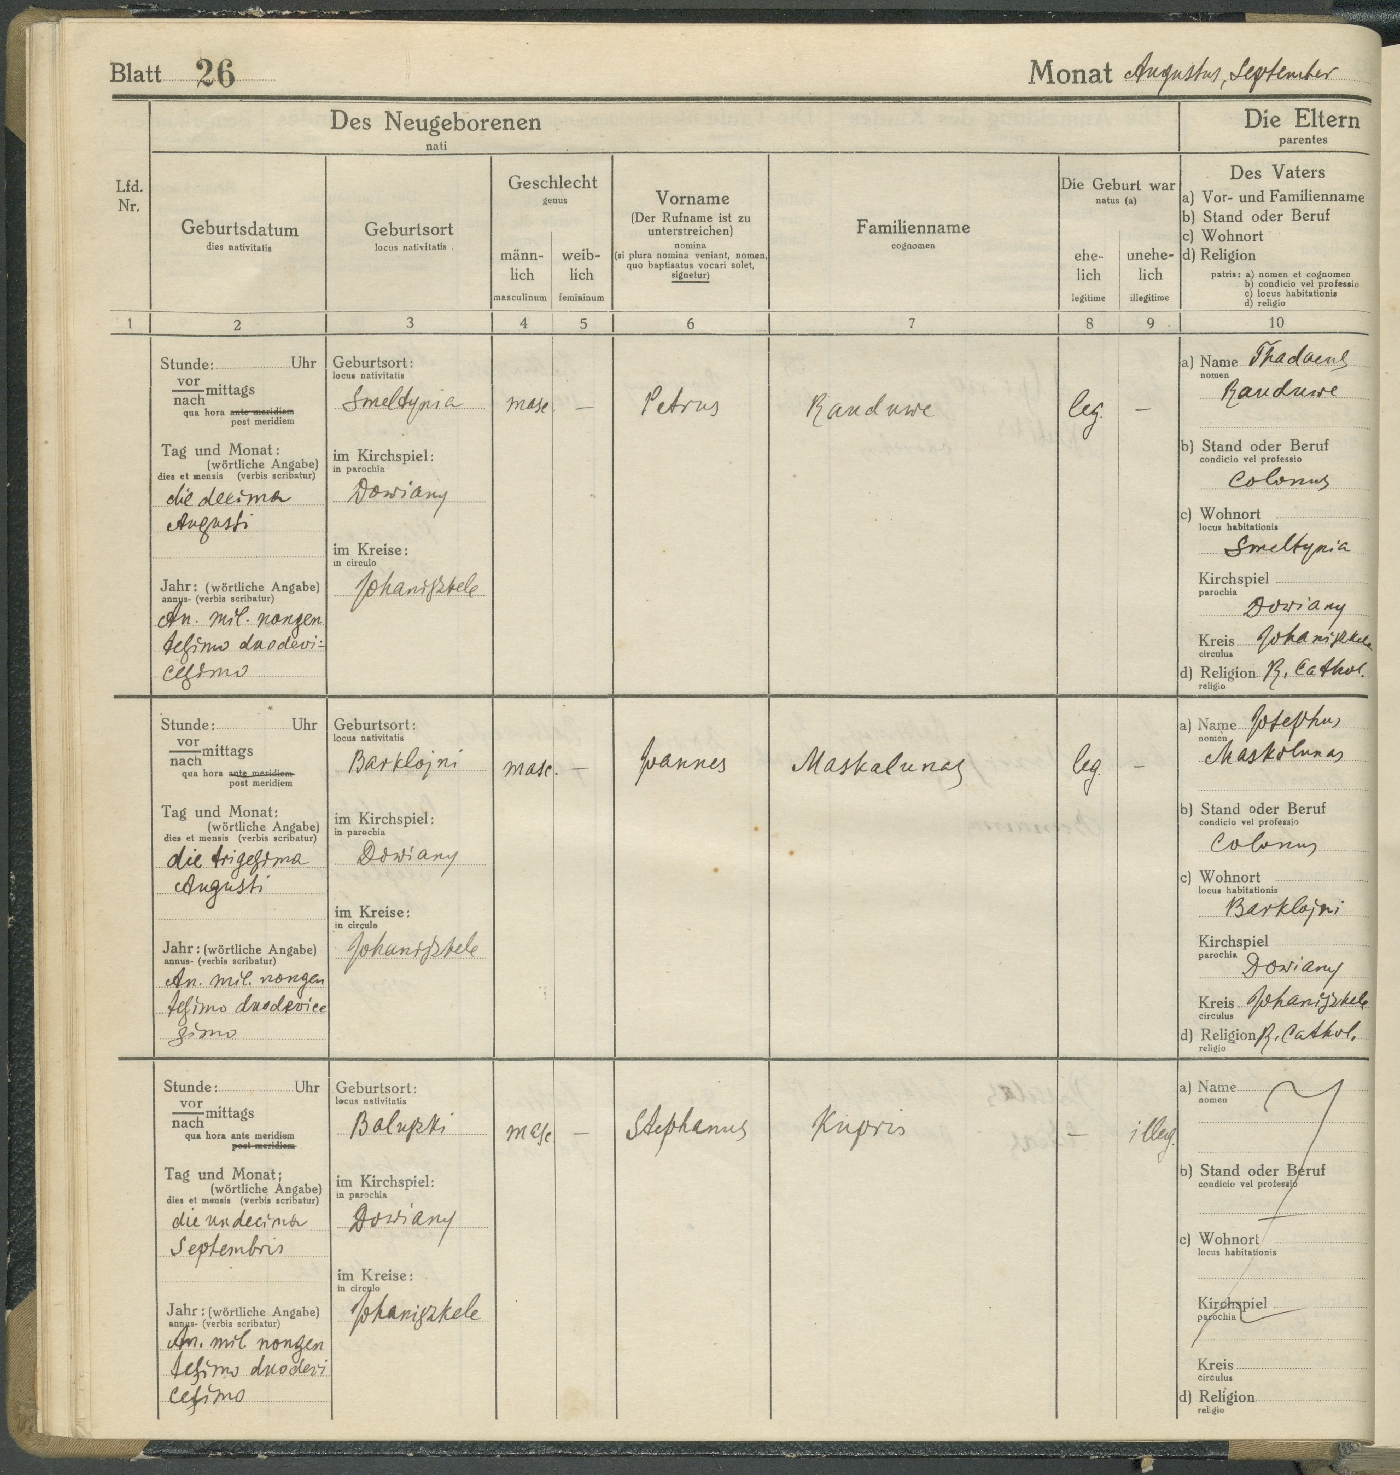 Blatt 26
Monat Augustus, September
Des Neugeborenen
nati
Die Eltern
parentes
Lfd.
Nr.
Geburtsdatum
dies nativitatis
Geburtsort
locus nativitatis
Geschlecht
genus
männ-
lich
masculinum
weib-
lich
femininum
Vorname
(Der Rufname ist zu
unterstreichen)
nomina
(si plura nomina veniant, nomen,
quo baptisatus vocari solet,
signetur)
Familienname
cognomen
Die Geburt war
natus (a)
ehe-
lich
legitime
unehe-
lich
illegitime
Des Vaters
a) Vor- und Familienname
b) Stand oder Beruf
c) Wohnort
d) Religion
patris: a) nomen et cognomen
b) condicio vel professio
c) locus habitationis
d) religio
1 2 3 4 5 6 7 8 9 10
Stunde: Uhr
vor
nach mittags
qua hora ante meridiem
post meridiem
Tag und Monat:
(wörtliche Angabe)
dies et mensis (verbis scribatur)
die decima
Augusti
Jahr: (wörtliche Angabe)
annus- (verbis scribatur)
An. mil. nongen
tesimo duodevi-
cesimo
Geburtsort:
locus nativitatis
Smeltynia
im Kirchspiel:
in parochia
Dowiany
im Kreise:
in circulo
Johaniszkele
masc. —
Petrus
Randuwe
leg. —
a) Name Thadaeus
nomen
Randuwe
b) Stand oder Beruf
condicio vel professio
Colonus
c) Wohnort
locus habitationis
Smeltynia
Kirchspiel
parochia
Dowiany
Kreis Johaniszkele
circulus
d) Religion R. Cathol.
religio
Stunde: Uhr
vor
nach mittags
qua hora ante meridiem
post meridiem
Tag und Monat:
(wörtliche Angabe)
dies et mensis (verbis scribatur)
die trigesima
Augusti
Jahr: (wörtliche Angabe)
annus- (verbis scribatur)
An. mil. nongen
tesimo duodevice
simo
Geburtsort:
locus nativitatis
Barklojni
im Kirchspiel:
in parochia
Dowiany
im Kreise:
in circulo
Johaniszkele
masc. —
Joannes
Maskalunas
leg. —
a) Name Josephus
nomen
Maskolunas
b) Stand oder Beruf
condicio vel professio
Colonus
c) Wohnort
locus habitationis
Barklojni
Kirchspiel
parochia
Dowiany
Kreis Johaniszkele
circulus
d) Religion R. Cathol.
religio
Stunde: Uhr
vor
nach mittags
qua hora ante meridiem
post meridiem
Tag und Monat:
(wörtliche Angabe)
dies et mensis (verbis scribatur)
die undecima
Septembris
Jahr: (wörtliche Angabe)
annus- (verbis scribatur)
An. mil. nongen
tesimo duodevi
cesimo
Geburtsort:
locus nativitatis
Baluszki
im Kirchspiel:
in parochia
Dowiany
im Kreise:
in circulo
Johaniszkele
masc —
Stephanus
Kupris
— illeg.
a) Name
nomen
b) Stand oder Beruf
condicio vel professio
c) Wohnort
locus habitationis
Kirchspiel
parochia
Kreis
circulus
d) Religion
religio